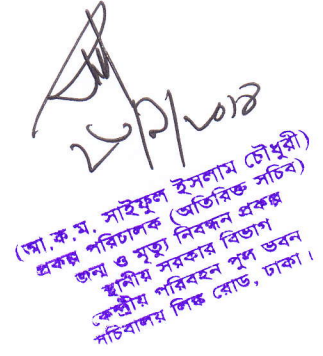 (আ.ক.ম. সাইফুল ইসলাম চৌধুরী)
প্রকল্প পরিচালক (অতিরিক্ত সচিব)
জন্ম ও মৃত্যু নিবন্ধন প্রকল্প
স্থানীয় সরকার বিভাগ
কেন্দ্রীয় পরিবহন পুল ভবন
সচিবালয় লিঙ্ক রোড, ঢাকা।